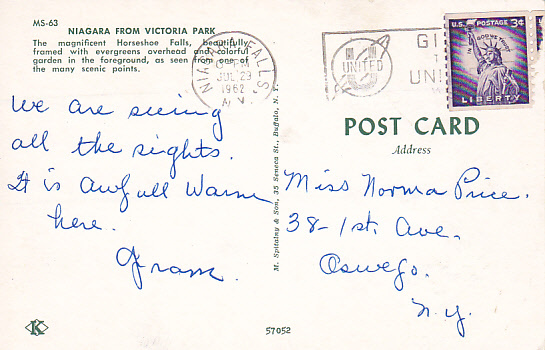 MS-63
NIAGARA FROM VICTORIA PARK
The magnificent Horseshoe Falls, beautifully
framed with evergreens overhead and colorful
garden in the foreground, as seen from one of
the many scenic points.
NIAGARA FALLS
PM
JUL 23
1962
N.Y.
UNITED
GI
UNI
U.S. POSTAGE 3¢
IN GOD WE TRUST
LIBERTY
POST CARD
Address
We are seeing
all the sights.
It is awfull warm
here.
Gram.
M. Spitalny & Son, 35 Seneca St., Buffalo, N. Y.
Miss Norma Price.
38-1st. Ave.
Oswego.
N.Y.
K
57052